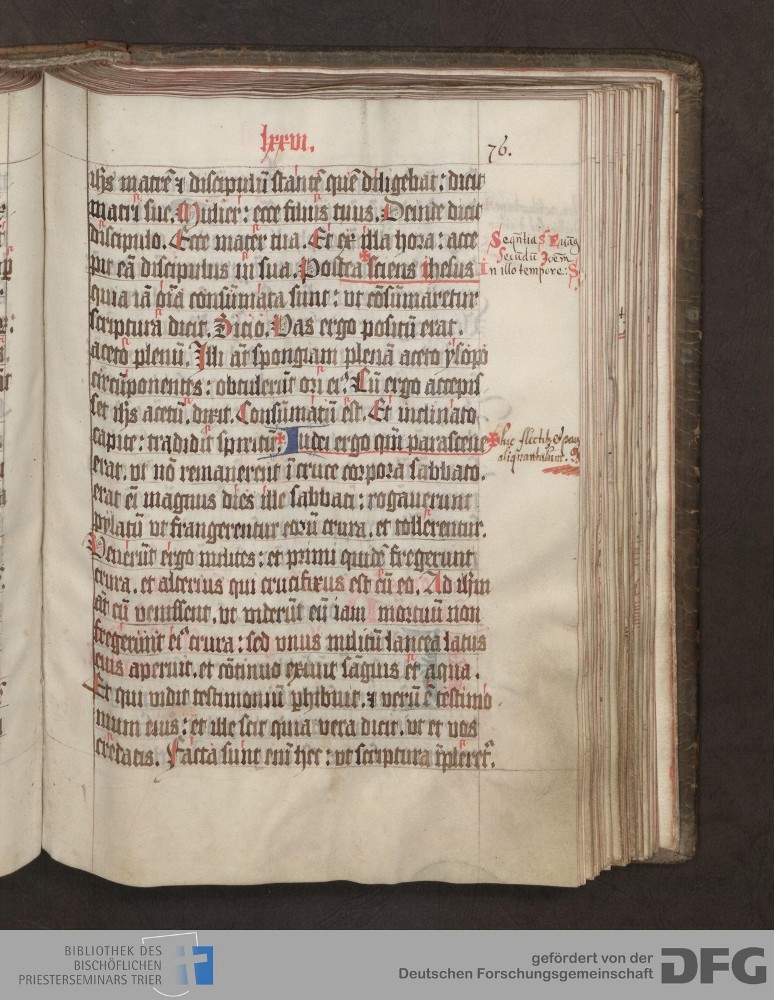 lxxvi.
76.
ihs matrē ⁊ discipulū stātē quē diligebat: dicit
matri sue. Mulier: ecce filius tuus. Deinde dicit
discipulo. Ecce mater tua. Et ex illa hora: acce
pit eā discipulus in sua. Postea sciens ihesus
quia iā oīa consūmata sunt: vt cōsūmaretur
scriptura dicit. Sicio. Vas ergo positū erat.
aceto plenū. Illi aūt spongiam plenā aceto ysopo
circūponentes: obtulerūt ori eiꝰ. Cū ergo accepis
set ihs acetū. dixit. Consūmatū est. Et inclinato
capite: tradidit spiritū. Iudei ergo qm̄ parasceue
erat. vt nō remanerent ī cruce corpora sabbato.
erat eī magnus dies ille sabbati: rogauerunt
pylatū vt frangerentur eorū crura. et tollerentur.
Venerūt ergo milites: et primi quidē fregerunt
crura. et alterius qui crucifixus est cū eo. Ad ihm
aūt cū venissent. vt viderūt eū iam mortuū non
fregerunt eiꝰ crura: sed vnus militū lancea latus
eius aperuit. et cōtinuo exiuit sāguis et aqua.
Et qui vidit testimoniū phibuit. ⁊ verū ē testimo
nium eius: et ille scit quia vera dicit. vt et vos
credatis. Facta sunt enī hec: vt scriptura īpleret.
Seqn̄tia S. Euāg
Secūdū Joēm
In illo tempore: S
hic flectitꝰ et pau
aliquantulum.
BIBLIOTHEK DES
BISCHÖFLICHEN
PRIESTERSEMINARS TRIER
gefördert von der
Deutschen Forschungsgemeinschaft
DFG